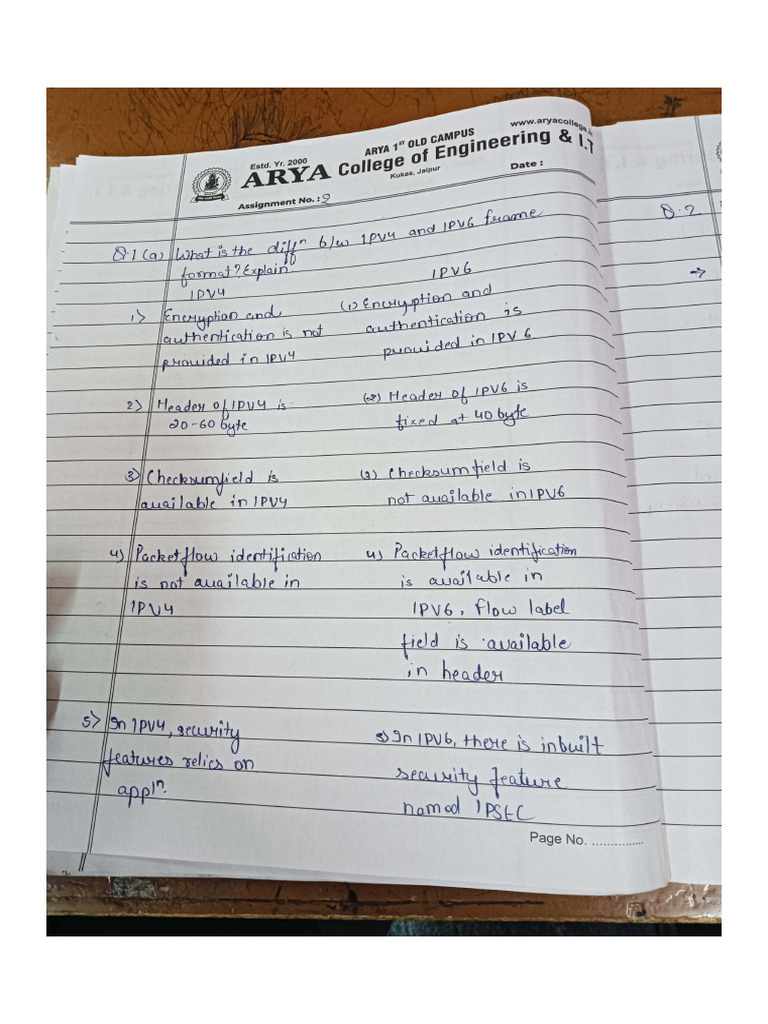 www.aryacollege.
ARYA 1ST OLD CAMPUS
Estd. Yr. 2000
ARYA College of Engineering & I.T
Kukas, Jaipur
Assignment No.: 2
Date :
Q.1 (a) What is the diffn b/w IPV4 and IPV6 frame
format? Explain
IPV4 IPV6
1) Encryption and (1) Encryption and
authentication is not authentication is
provided in IPV4 provided in IPV 6
2) Header of IPV4 is (2) Header of IPV6 is
20-60 byte fixed at 40 byte
3) Checksumfield is (3) Checksumfield is
available in IPV4 not available in IPV6
4) Packetflow identification 4) Packetflow identification
is not available in is available in
IPV4 IPV6, flow label
field is available
in header
5) In IPV4, security 5) In IPV6, there is inbuilt
features relics on security feature
appln. named IPSEC
Page No. ...............
Q.2
→